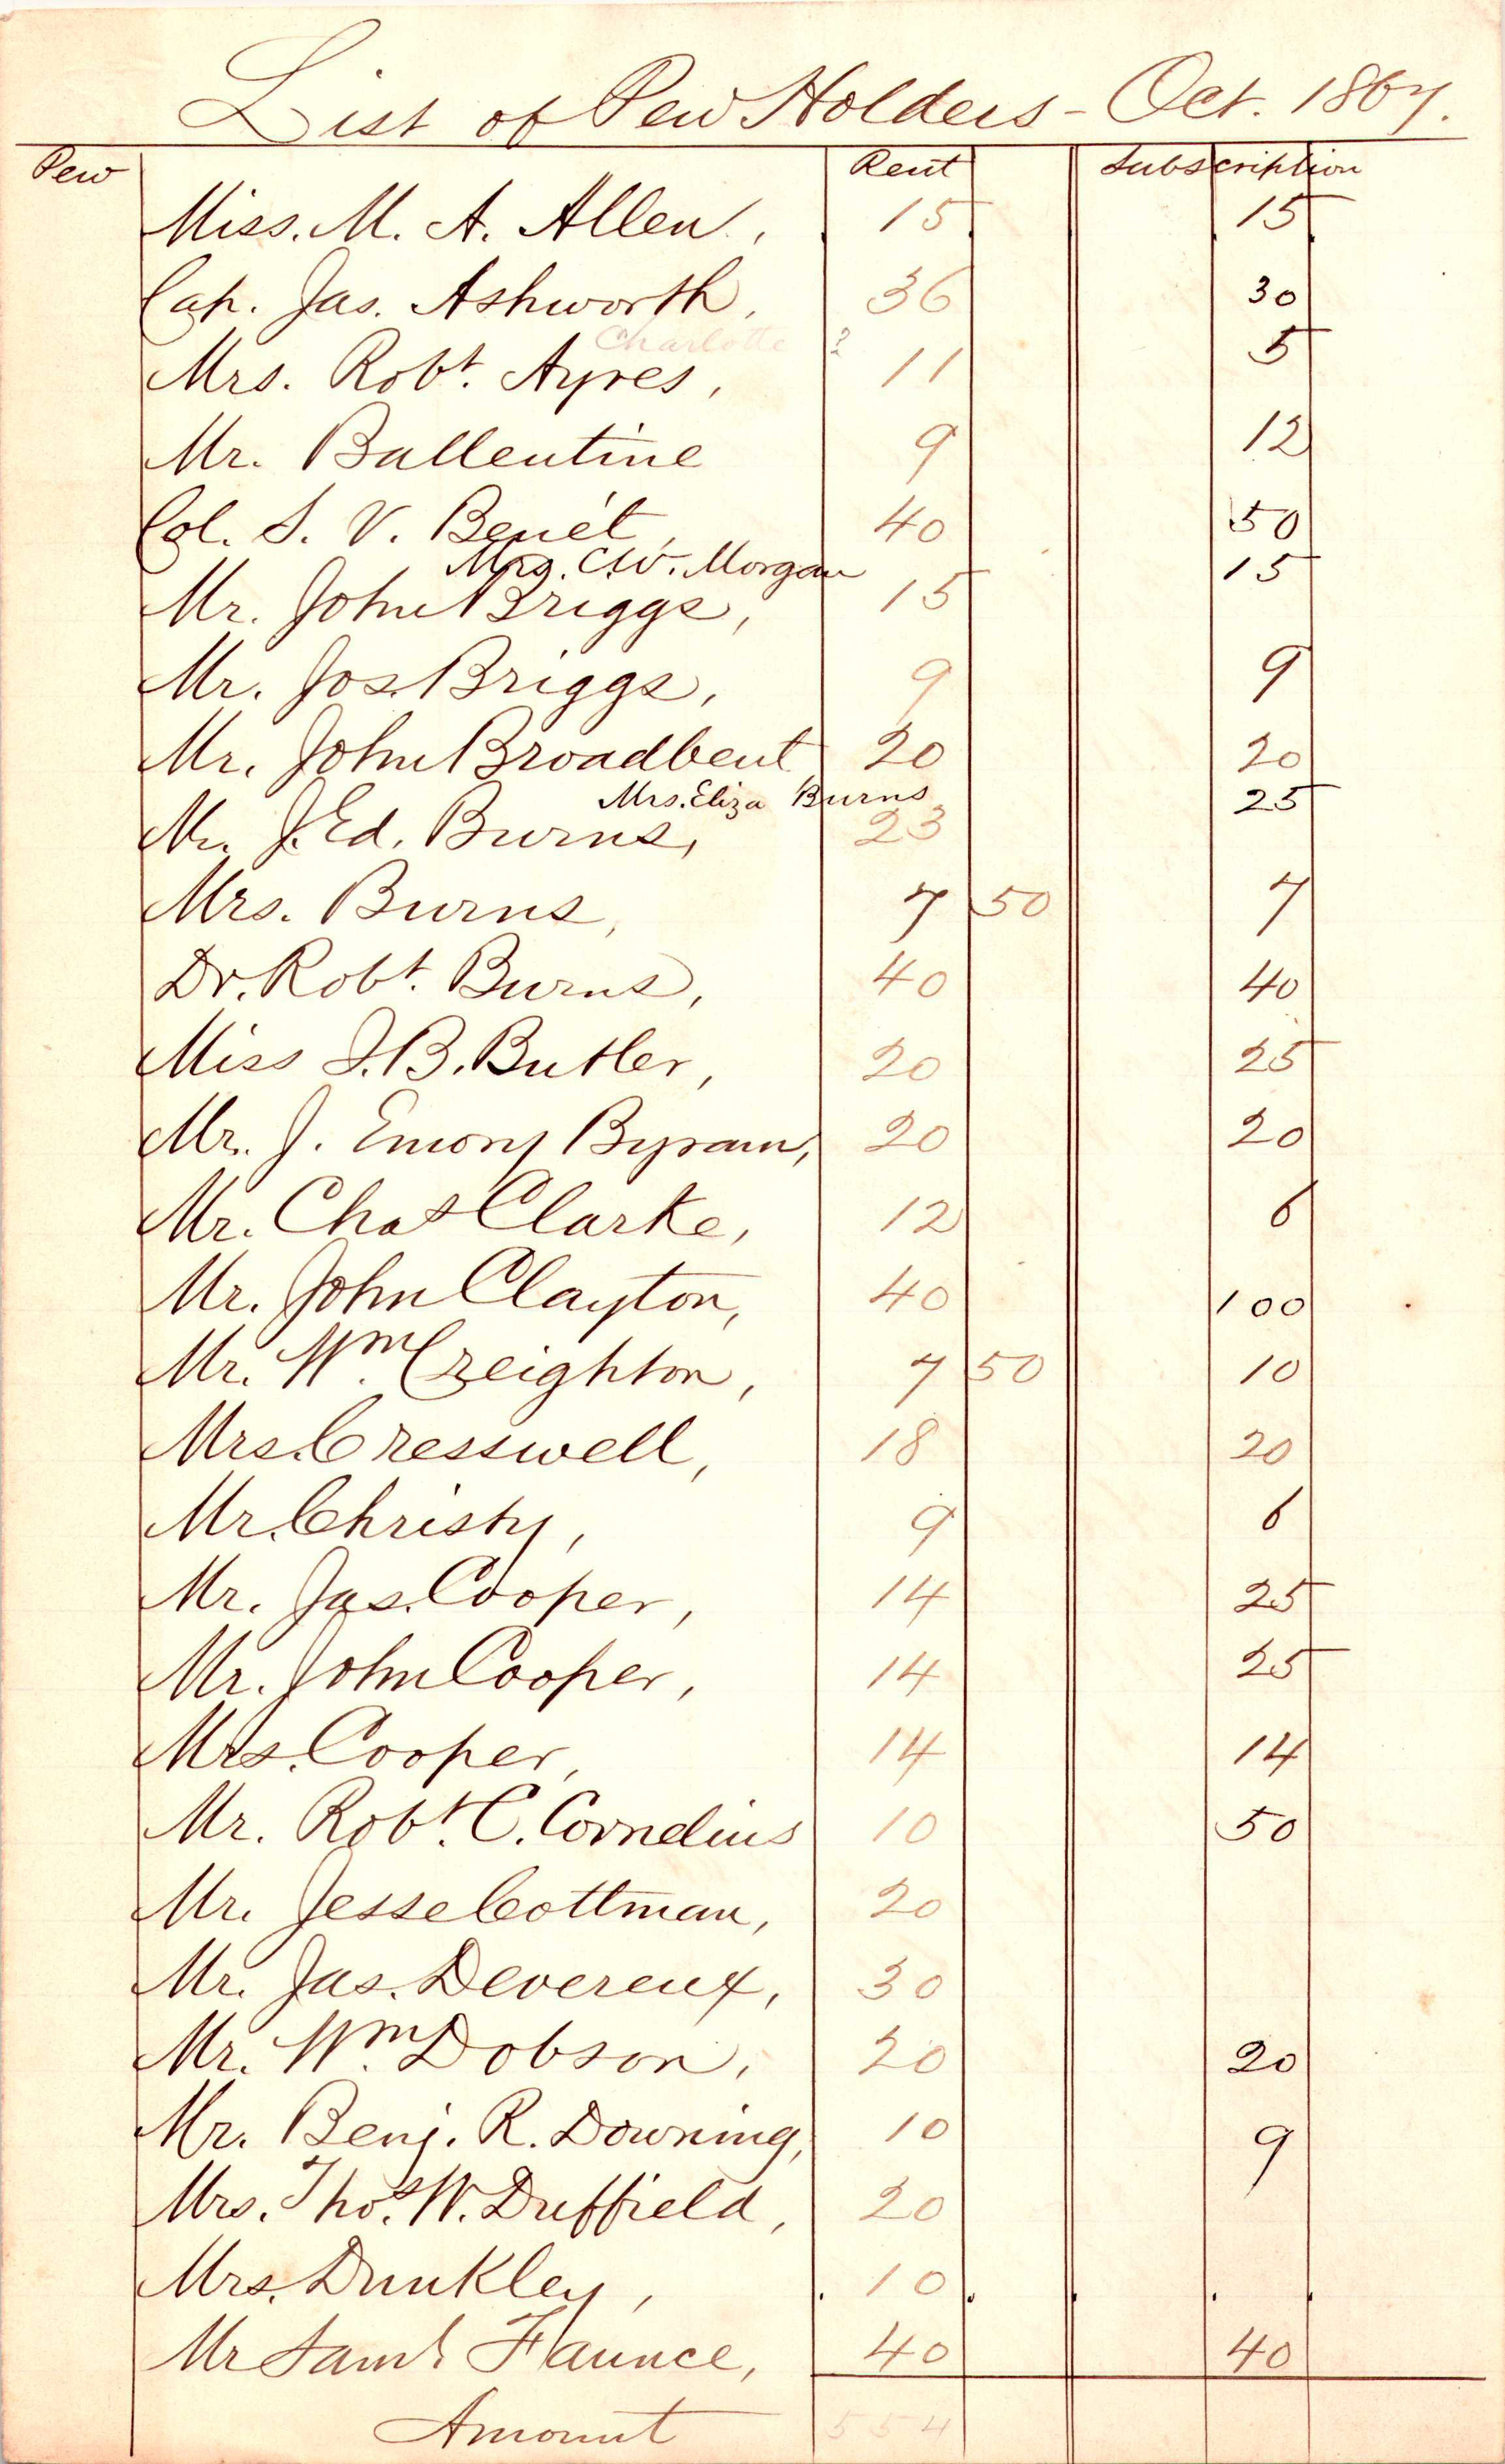 List of Pew Holders - Oct. 1867.
Pew Rent Subscription
Miss. M. A. Allen, 15 15
Cap. Jas. Ashworth, 36 30
Charlotte ?
Mrs. Robt. Ayres, 11 5
Mr. Ballentine 9 12
Col. S. V. Benét, 40 50
Mrs. C.W. Morgan
Mr. John Briggs, 15 15
Mr. Jos. Briggs, 9 9
Mr. John Broadbent 20 20
Mrs. Eliza Burns
Mr. J. Ed. Burns, 23 25
Mrs. Burns, 7 50 7
Dr. Robt. Burns, 40 40
Miss J. B. Butler, 20 25
Mr. J. Emory Byram, 20 20
Mr. Chas Clarke, 12 6
Mr. John Clayton, 40 100
Mr. Wm. Creighton, 7 50 10
Mrs. Cresswell, 18 20
Mr. Christy, 9 6
Mr. Jas. Cooper, 14 25
Mr. John Cooper, 14 25
Mrs. Cooper, 14 14
Mr. Robt. C. Cornelius 10 50
Mr. Jesse Cottman, 20
Mr. Jas. Devereux, 30
Mr. Wm. Dobson, 20 20
Mr. Benj. R. Downing, 10 9
Mrs. Thos. W. Duffield, 20
Mrs. Dunkley, 10
Mr Saml. Faunce, 40 40
Amount 554